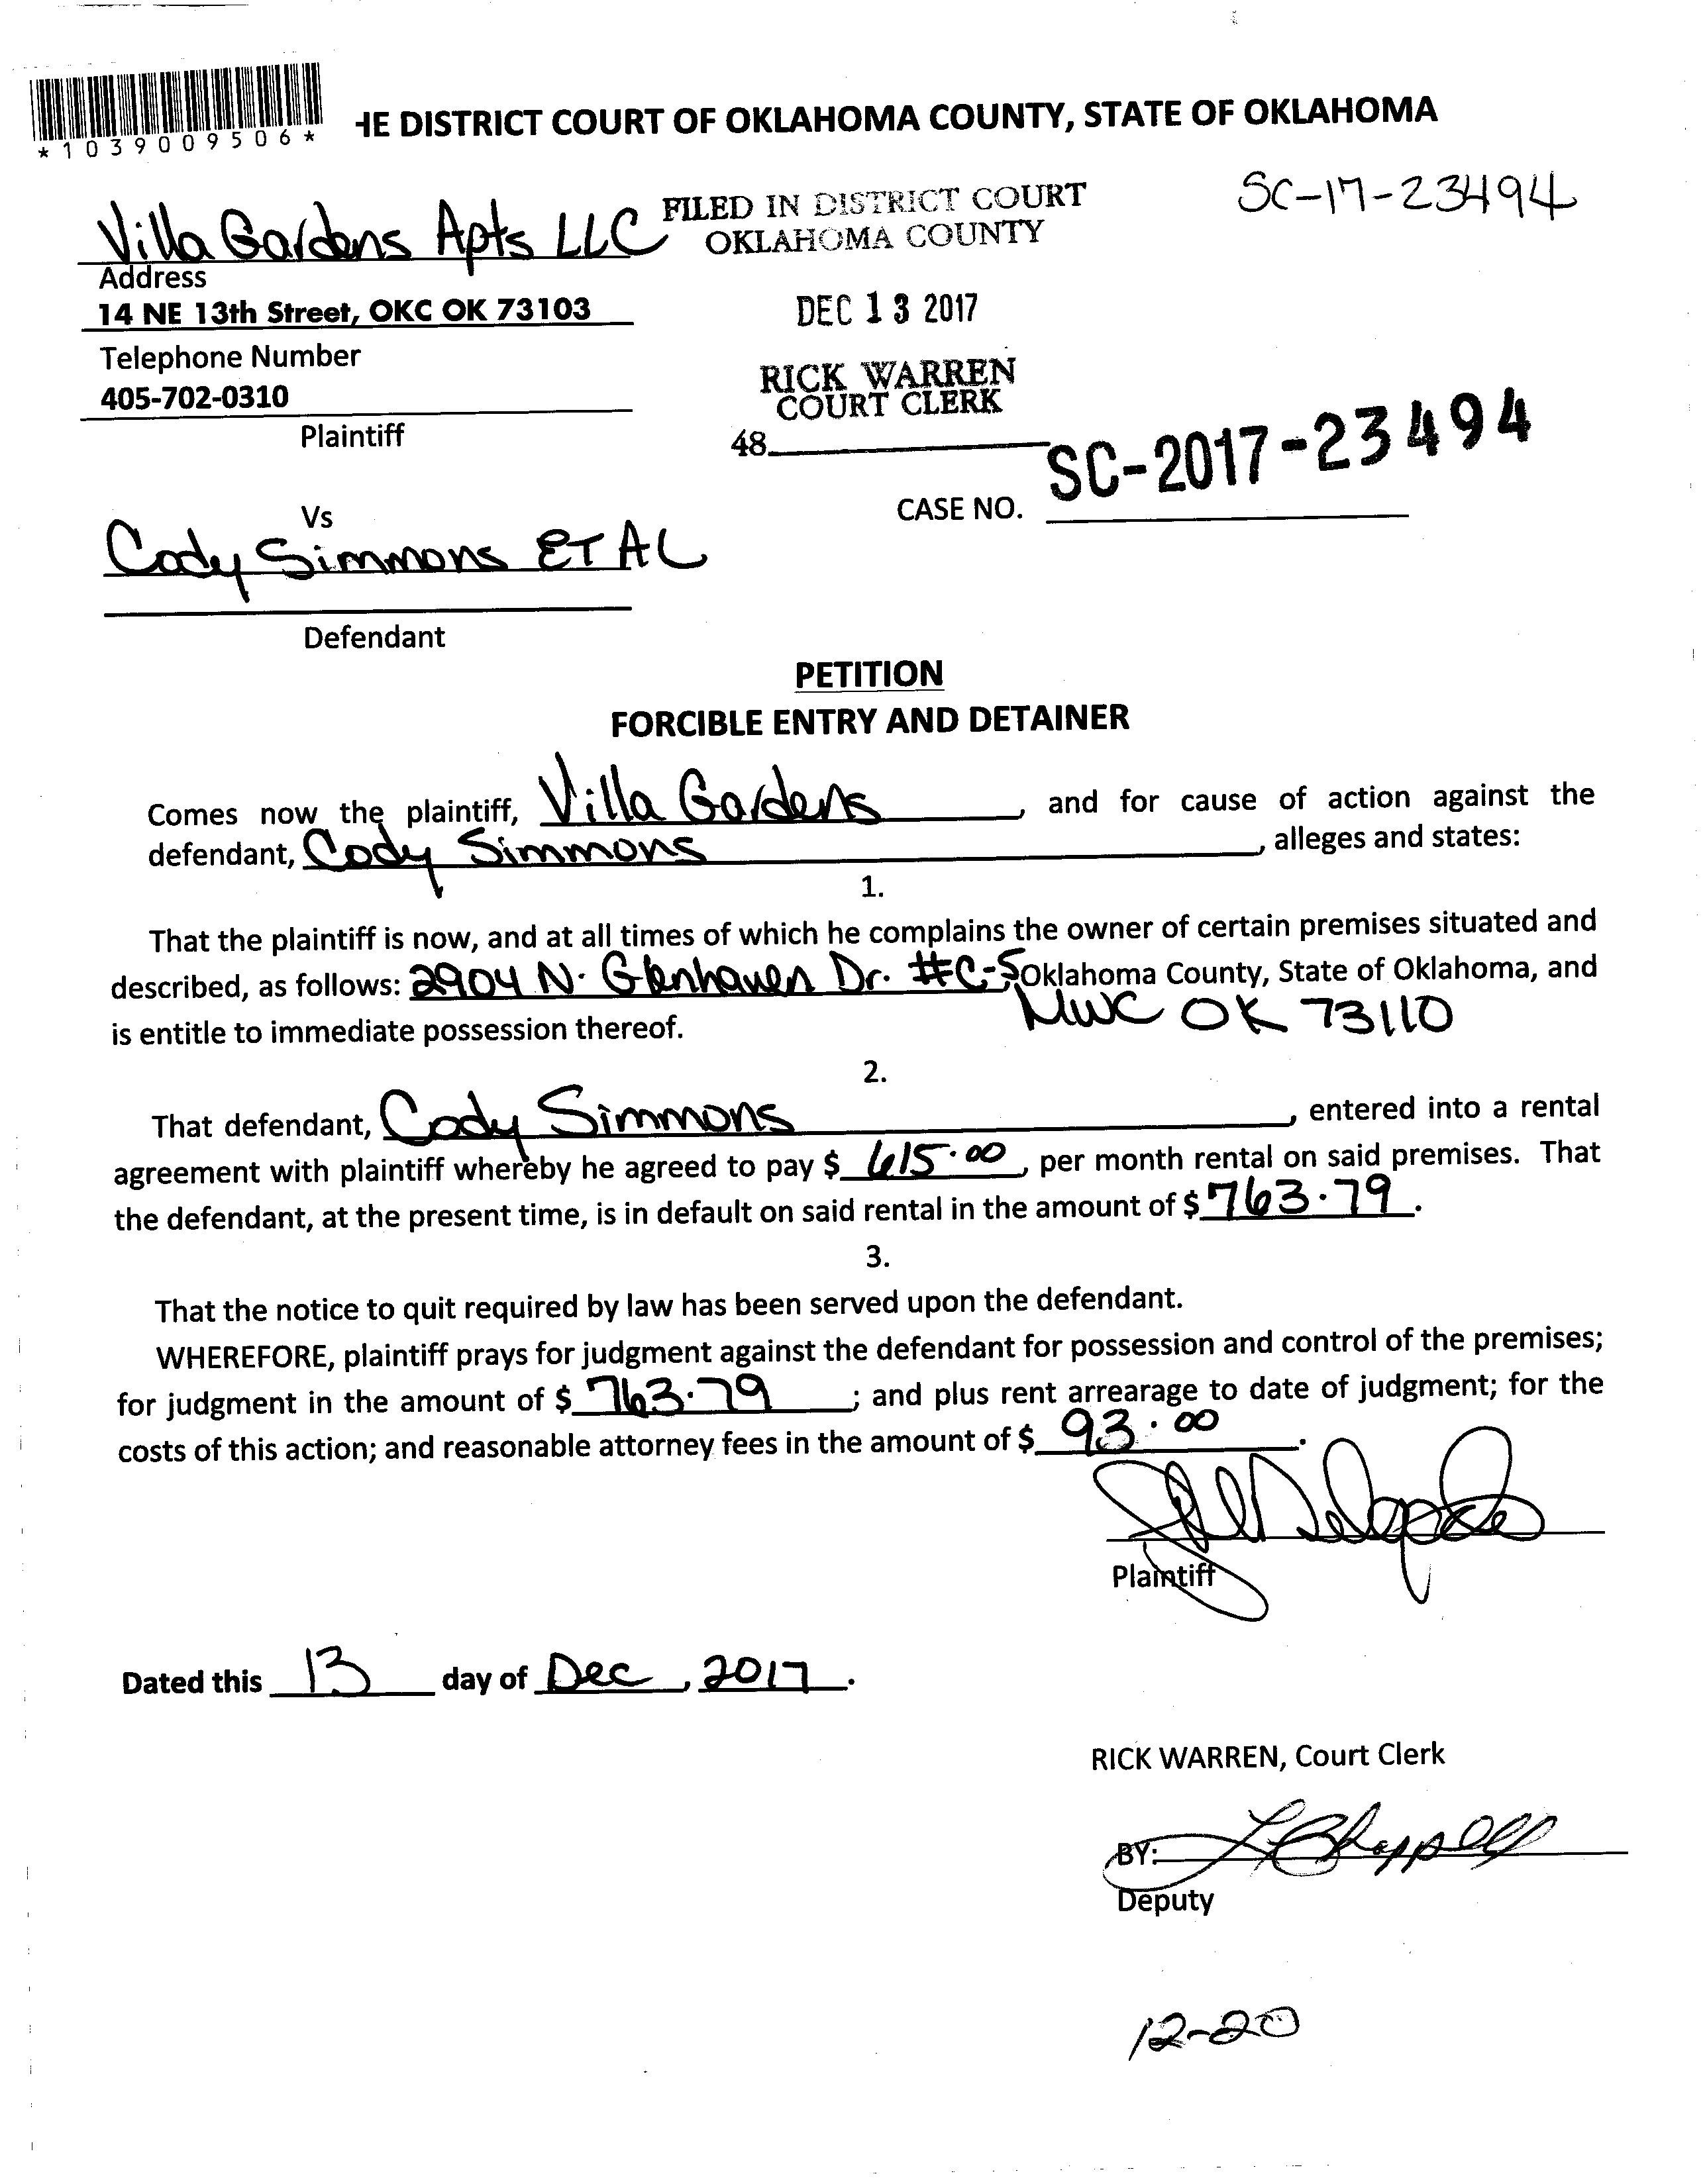 *1039009506*
HE DISTRICT COURT OF OKLAHOMA COUNTY, STATE OF OKLAHOMA
SC-17-23494
Villa Gardens Apts LLC
FILED IN DISTRICT COURT
OKLAHOMA COUNTY
Address
14 NE 13th Street, OKC OK 73103
DEC 13 2017
Telephone Number
405-702-0310
RICK WARREN
COURT CLERK
Plaintiff
48
SC-2017-23494
CASE NO.
Vs
Cody Simmons ET AL
Defendant
PETITION
FORCIBLE ENTRY AND DETAINER
Comes now the plaintiff, Villa Gardens, and for cause of action against the
defendant, Cody Simmons, alleges and states:
1.
That the plaintiff is now, and at all times of which he complains the owner of certain premises situated and
described, as follows: 2904 N. Glenhaven Dr. #C-5 Oklahoma County, State of Oklahoma, and
MWC OK 73110
is entitle to immediate possession thereof.
2.
That defendant, Cody Simmons, entered into a rental
agreement with plaintiff whereby he agreed to pay $ 615.00, per month rental on said premises. That
the defendant, at the present time, is in default on said rental in the amount of $ 763.79.
3.
That the notice to quit required by law has been served upon the defendant.
WHEREFORE, plaintiff prays for judgment against the defendant for possession and control of the premises;
for judgment in the amount of $ 763.79; and plus rent arrearage to date of judgment; for the
costs of this action; and reasonable attorney fees in the amount of $ 93.00.
Plaintiff
Dated this 13 day of Dec, 2017.
RICK WARREN, Court Clerk
BY: L Chappell
Deputy
12-20